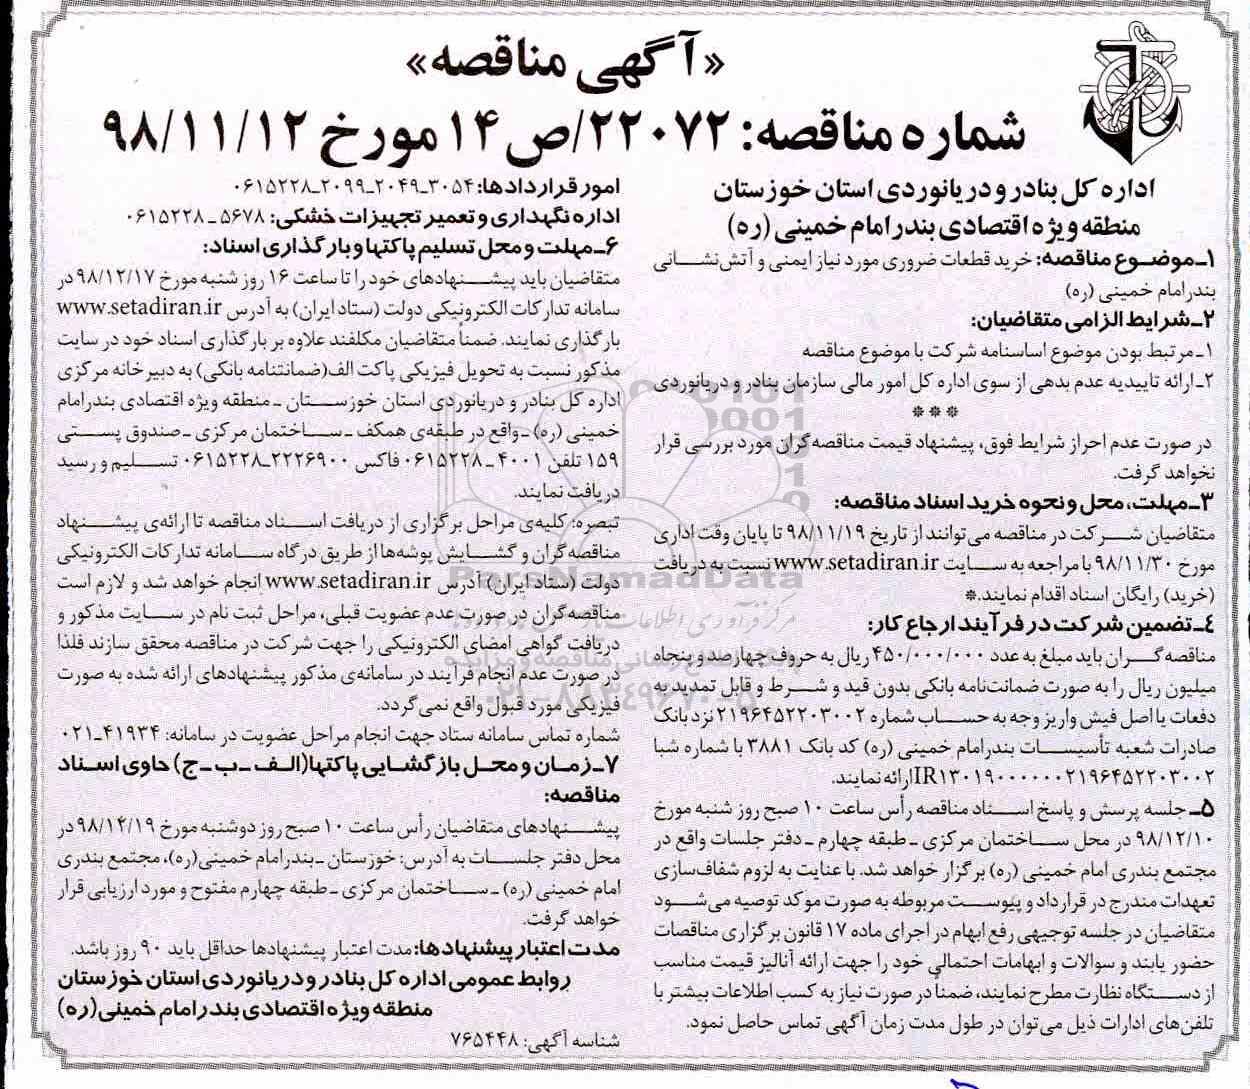 «آگهی مناقصه»
شماره مناقصه: ۲۲۰۷۲/ص ۱۴ مورخ ۹۸/۱۱/۱۲
اداره کل بنادر و دریانوردی استان خوزستان
منطقه ویژه اقتصادی بندر امام خمینی (ره)
۱ـ موضوع مناقصه: خرید قطعات ضروری مورد نیاز ایمنی و آتش‌نشانی
بندرامام خمینی (ره)
۲ـ شرایط الزامی متقاضیان:
۱ـ مرتبط بودن موضوع اساسنامه شرکت با موضوع مناقصه
۲ـ ارائه تاییدیه عدم بدهی از سوی اداره کل امور مالی سازمان بنادر و دریانوردی
***
در صورت عدم احراز شرایط فوق، پیشنهاد قیمت مناقصه‌گران مورد بررسی قرار
نخواهد گرفت.
۳ـ مهلت، محل و نحوه خرید اسناد مناقصه:
متقاضیان شرکت در مناقصه می‌توانند از تاریخ ۹۸/۱۱/۱۹ تا پایان وقت اداری
مورخ ۹۸/۱۱/۳۰ با مراجعه به سایت www.setadiran.ir نسبت به دریافت
(خرید) رایگان اسناد اقدام نمایند.*
۴ـ تضمین شرکت در فرآیند ارجاع کار:
مناقصه‌گران باید مبلغ به عدد ۴۵۰/۰۰۰/۰۰۰ ریال به حروف چهارصد و پنجاه
میلیون ریال را به صورت ضمانت‌نامه بانکی بدون قید و شرط و قابل تمدید به
دفعات یا اصل فیش واریز وجه به حساب شماره ۲۱۹۶۴۵۲۲۰۳۰۰۲ نزد بانک
صادرات شعبه تأسیسات بندرامام خمینی (ره) کد بانک ۳۸۸۱ با شماره شبا
IR۱۳۰۱۹۰۰۰۰۰۰۰۲۱۹۶۴۵۲۲۰۳۰۰۲ ارائه نمایند.
۵ـ جلسه پرسش و پاسخ اسناد مناقصه رأس ساعت ۱۰ صبح روز شنبه مورخ
۹۸/۱۲/۱۰ در محل ساختمان مرکزی ـ طبقه چهارم ـ دفتر جلسات واقع در
مجتمع بندری امام خمینی (ره) برگزار خواهد شد. با عنایت به لزوم شفاف‌سازی
تعهدات مندرج در قرارداد و پیوست مربوطه به صورت موکد توصیه می‌شود
متقاضیان در جلسه توجیهی رفع ابهام در اجرای ماده ۱۷ قانون برگزاری مناقصات
حضور یابند و سوالات و ابهامات احتمالی خود را جهت ارائه آنالیز قیمت مناسب
از دستگاه نظارت مطرح نمایند، ضمناً در صورت نیاز به کسب اطلاعات بیشتر با
تلفن‌های ادارات ذیل می‌توان در طول مدت زمان آگهی تماس حاصل نمود.
امور قراردادها: ۳۰۵۴ـ۲۰۴۹ـ۲۰۹۹ـ۰۶۱۵۲۲۸
اداره نگهداری و تعمیر تجهیزات خشکی: ۵۶۷۸ ـ ۰۶۱۵۲۲۸
۶ـ مهلت و محل تسلیم پاکتها و بارگذاری اسناد:
متقاضیان باید پیشنهادهای خود را تا ساعت ۱۶ روز شنبه مورخ ۹۸/۱۲/۱۷ در
سامانه تدارکات الکترونیکی دولت (ستاد ایران) به آدرس www.setadiran.ir
بارگذاری نمایند. ضمناً متقاضیان مکلفند علاوه بر بارگذاری اسناد خود در سایت
مذکور نسبت به تحویل فیزیکی پاکت الف(ضمانتنامه بانکی) به دبیرخانه مرکزی
اداره کل بنادر و دریانوردی استان خوزستان ـ منطقه ویژه اقتصادی بندرامام
خمینی (ره) ـ واقع در طبقه‌ی همکف ـ ساختمان مرکزی ـ صندوق پستی
۱۵۹ تلفن ۴۰۰۱ ـ ۰۶۱۵۲۲۸ فاکس ۲۲۲۶۹۰۰ـ۰۶۱۵۲۲۸ تسلیم و رسید
دریافت نمایند.
تبصره: کلیه‌ی مراحل برگزاری از دریافت اسناد مناقصه تا ارائه‌ی پیشنهاد
مناقصه‌گران و گشایش پوشه‌ها از طریق درگاه سامانه تدارکات الکترونیکی
دولت (ستاد ایران) آدرس www.setadiran.ir انجام خواهد شد و لازم است
مناقصه‌گران در صورت عدم عضویت قبلی، مراحل ثبت نام در سایت مذکور و
دریافت گواهی امضای الکترونیکی را جهت شرکت در مناقصه محقق سازند فلذا
در صورت عدم انجام فرایند در سامانه‌ی مذکور پیشنهادهای ارائه شده به صورت
فیزیکی مورد قبول واقع نمی‌گردد.
شماره تماس سامانه ستاد جهت انجام مراحل عضویت در سامانه: ۴۱۹۳۴ـ۰۲۱
۷ـ زمان و محل بازگشایی پاکتها(الف ـ ب ـ ج) حاوی اسناد
مناقصه:
پیشنهادهای متقاضیان رأس ساعت ۱۰ صبح روز دوشنبه مورخ ۹۸/۱۲/۱۹ در
محل دفتر جلسات به آدرس: خوزستان ـ بندرامام خمینی(ره)، مجتمع بندری
امام خمینی (ره) ـ ساختمان مرکزی ـ طبقه چهارم مفتوح و مورد ارزیابی قرار
خواهد گرفت.
مدت اعتبار پیشنهادها: مدت اعتبار پیشنهادها حداقل باید ۹۰ روز باشد.
روابط عمومی اداره کل بنادر و دریانوردی استان خوزستان
منطقه ویژه اقتصادی بندر امام خمینی(ره)
شناسه آگهی: ۷۶۵۴۴۸
ParsNamadData